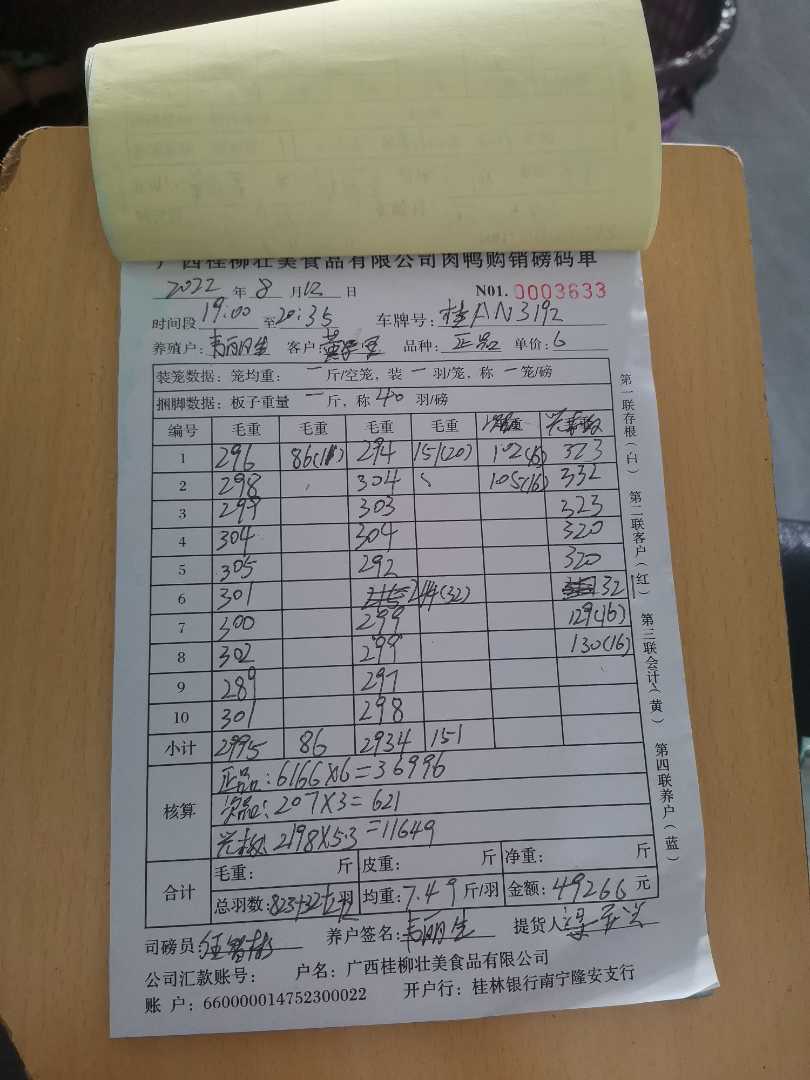 广西桂柳壮美食品有限公司肉鸭购销磅码单
2022 年 8 月 12 日 N01. 0003633
时间段 19:00 至 20:35 车牌号: 桂AN3192
养殖户: 韦丽生 客户: 品种: 正品 单价: 6
装笼数据: 笼均重: 一 斤/空笼, 装 一 羽/笼, 称 一 笼/磅
捆脚数据: 板子重量 一 斤, 称 40 羽/磅
编号 毛重 毛重 毛重 毛重
1 296 86(11) 294 151(20) 102(16) 323
2 298 304 105(16) 332
3 299 303 323
4 304 304 320
5 305 292 320
6 301 244(32) 321
7 300 299 129(16)
8 302 299 130(16)
9 289 297
10 301 298
小计 2995 86 2934 151
核算 正品: 6166×6=36996
次品: 207×3=621
2198×5.3=11649
合计 毛重: 斤 皮重: 斤 净重: 斤
总羽数: 823+32 羽 均重: 7.49 斤/羽 金额: 49266 元
司磅员: 养户签名: 韦丽生 提货人
公司汇款账号: 户名: 广西桂柳壮美食品有限公司
账 户: 660000014752300022 开户行: 桂林银行南宁隆安支行
第一联存根(白) 第二联客户(红) 第三联会计(黄) 第四联养户(蓝)